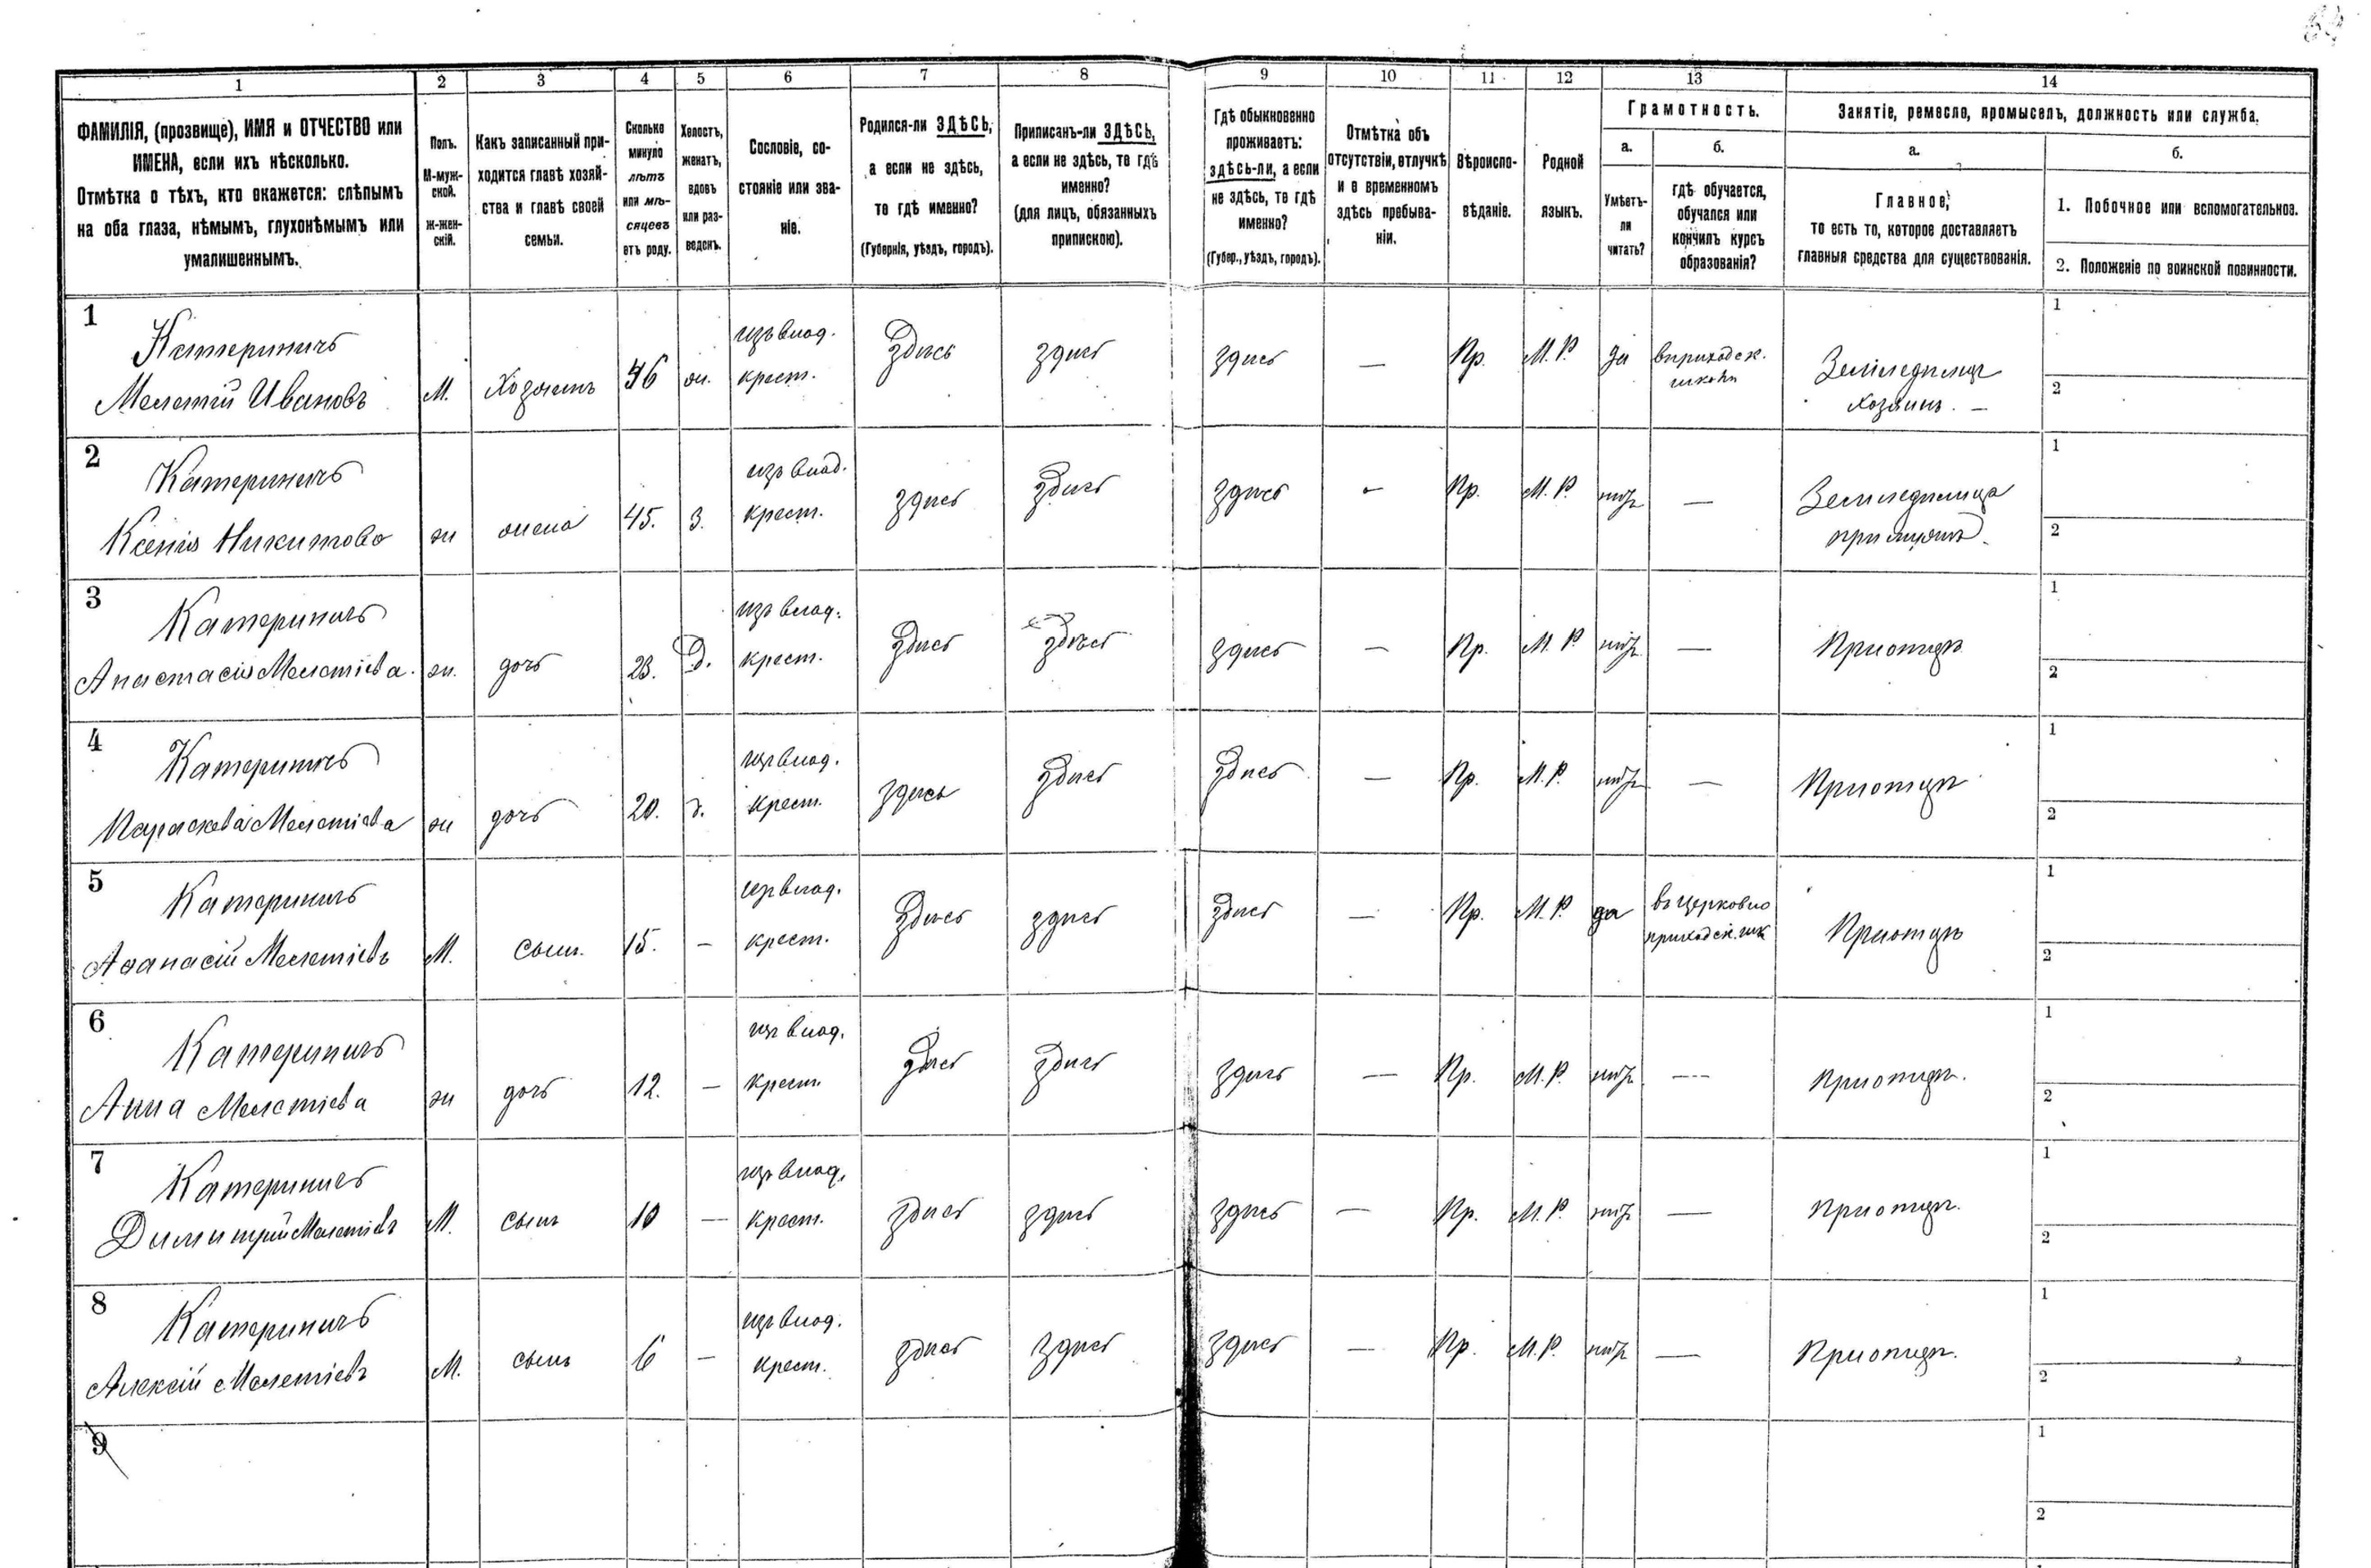 64
1 2 3 4 5 6 7 8 9 10 11 12 13 14
ФАМИЛІЯ, (прозвище), ИМЯ и ОТЧЕСТВО или
ИМЕНА, если ихъ нѣсколько.
Отмѣтка о тѣхъ, кто окажется: слѣпымъ
на оба глаза, нѣмымъ, глухонѣмымъ или
умалишеннымъ.
Полъ.
М-муж-
ской.
Ж-жен-
скій.
Какъ записанный при-
ходится главѣ хозяй-
ства и главѣ своей
семьи.
Сколько
минуло
лѣтъ
или мѣ-
сяцевъ
отъ роду.
Холостъ,
женатъ,
вдовъ
или раз-
веденъ.
Сословіе, со-
стояніе или зва-
ніе.
Родился-ли ЗДѢСЬ,
а если не здѣсь,
то гдѣ именно?
(Губернія, уѣздъ, городъ).
Приписанъ-ли ЗДѢСЬ,
а если не здѣсь, то гдѣ
именно?
(для лицъ, обязанныхъ
припискою).
Гдѣ обыкновенно
проживаетъ:
здѣсь-ли, а если
не здѣсь, то гдѣ
именно?
(Губер., уѣздъ, городъ).
Отмѣтка объ
отсутствіи, отлучкѣ
и о временномъ
здѣсь пребыва-
ніи.
Вѣроиспо-
вѣданіе.
Родной
языкъ.
Грамотность.
а.
Умѣетъ-
ли
читать?
б.
гдѣ обучается,
обучался или
кончилъ курсъ
образованія?
Занятіе, ремесло, промыселъ, должность или служба.
а.
Главное,
то есть то, которое доставляетъ
главныя средства для существованія.
б.
1. Побочное или вспомогательное.
2. Положеніе по воинской повинности.
1
Катериничъ
Мелетій Ивановъ
М. Хозяинъ 46 ж. изъ влад.
крест.
здѣсь здѣсь здѣсь — Пр. М. Р. да в приходск.
школѣ
Земледѣлецъ
хозяинъ. —
1
2
2
Катериничъ
Ксенія Никитова
ж жена 45. З. изъ влад.
крест.
здѣсь здѣсь здѣсь — Пр. М. Р. нѣтъ —
Земледѣлица
при мужѣ.
1
2
3
Катериничъ
Анастасія Мелетіева.
ж. дочь 23. Д. изъ влад.
крест.
здѣсь здѣсь здѣсь — Пр. М. Р. нѣтъ — При отцѣ
1
2
4
Катериничъ
Параскева Мелетіева
ж дочь 20. д. изъ влад.
крест.
здѣсь здѣсь здѣсь — Пр. М. Р. нѣтъ — При отцѣ
1
2
5
Катериничъ
Аѳанасій Мелетіевъ
М. сынъ. 15. — изъ влад.
крест.
здѣсь здѣсь здѣсь — Пр. М. Р. да въ церковно
приходск. шк
При отцѣ
1
2
6
Катериничъ
Анна Мелетіева
ж дочь 12. — изъ влад.
крест.
здѣсь здѣсь здѣсь — Пр. М. Р. нѣтъ — При отцѣ.
1
2
7
Катериничъ
Димитрій Мелетіевъ
М. сынъ 10 — изъ влад.
крест.
здѣсь здѣсь здѣсь — Пр. М. Р. нѣтъ — При отцѣ.
1
2
8
Катериничъ
Алексій Мелетіевъ
М. сынъ 6 — изъ влад.
крест.
здѣсь здѣсь здѣсь — Пр. М. Р. нѣтъ — При отцѣ.
1
2
9
1
2